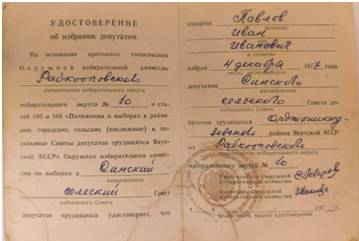 УДОСТОВЕРЕНИЕ
об избрании депутатом
На основании протокола голосования
Окружной избирательной комиссии
Райкооповского
наименование избирательного округа
избирательного округа № 10 и ста-
тей 103 и 104 «Положения о выборах в район-
ные, городские, сельские (наслежные) и по-
селковые Советы депутатов трудящихся Якутс-
кой АССР» Окружная избирательная комис-
сия по выборам в Синский
наименование
сельский Совет
избираемого Совета
депутатов трудящихся удостоверяет, что
товарищ Павлов
Иван
Иванович
и отчество
избран 4 декабря 1977 года
депутатом Синского
наименование
сельского Совета де-
избираемого Совета
путатов трудящихся Орджоникид-
зевского района Якутской АССР
от Райкооповского
наименование избирательного округа
избирательного округа № 10.
Председатель Окружной
избирательной комиссии
Секретарь Окружной
избирательной комиссии
197 г.
выдачи удостоверения